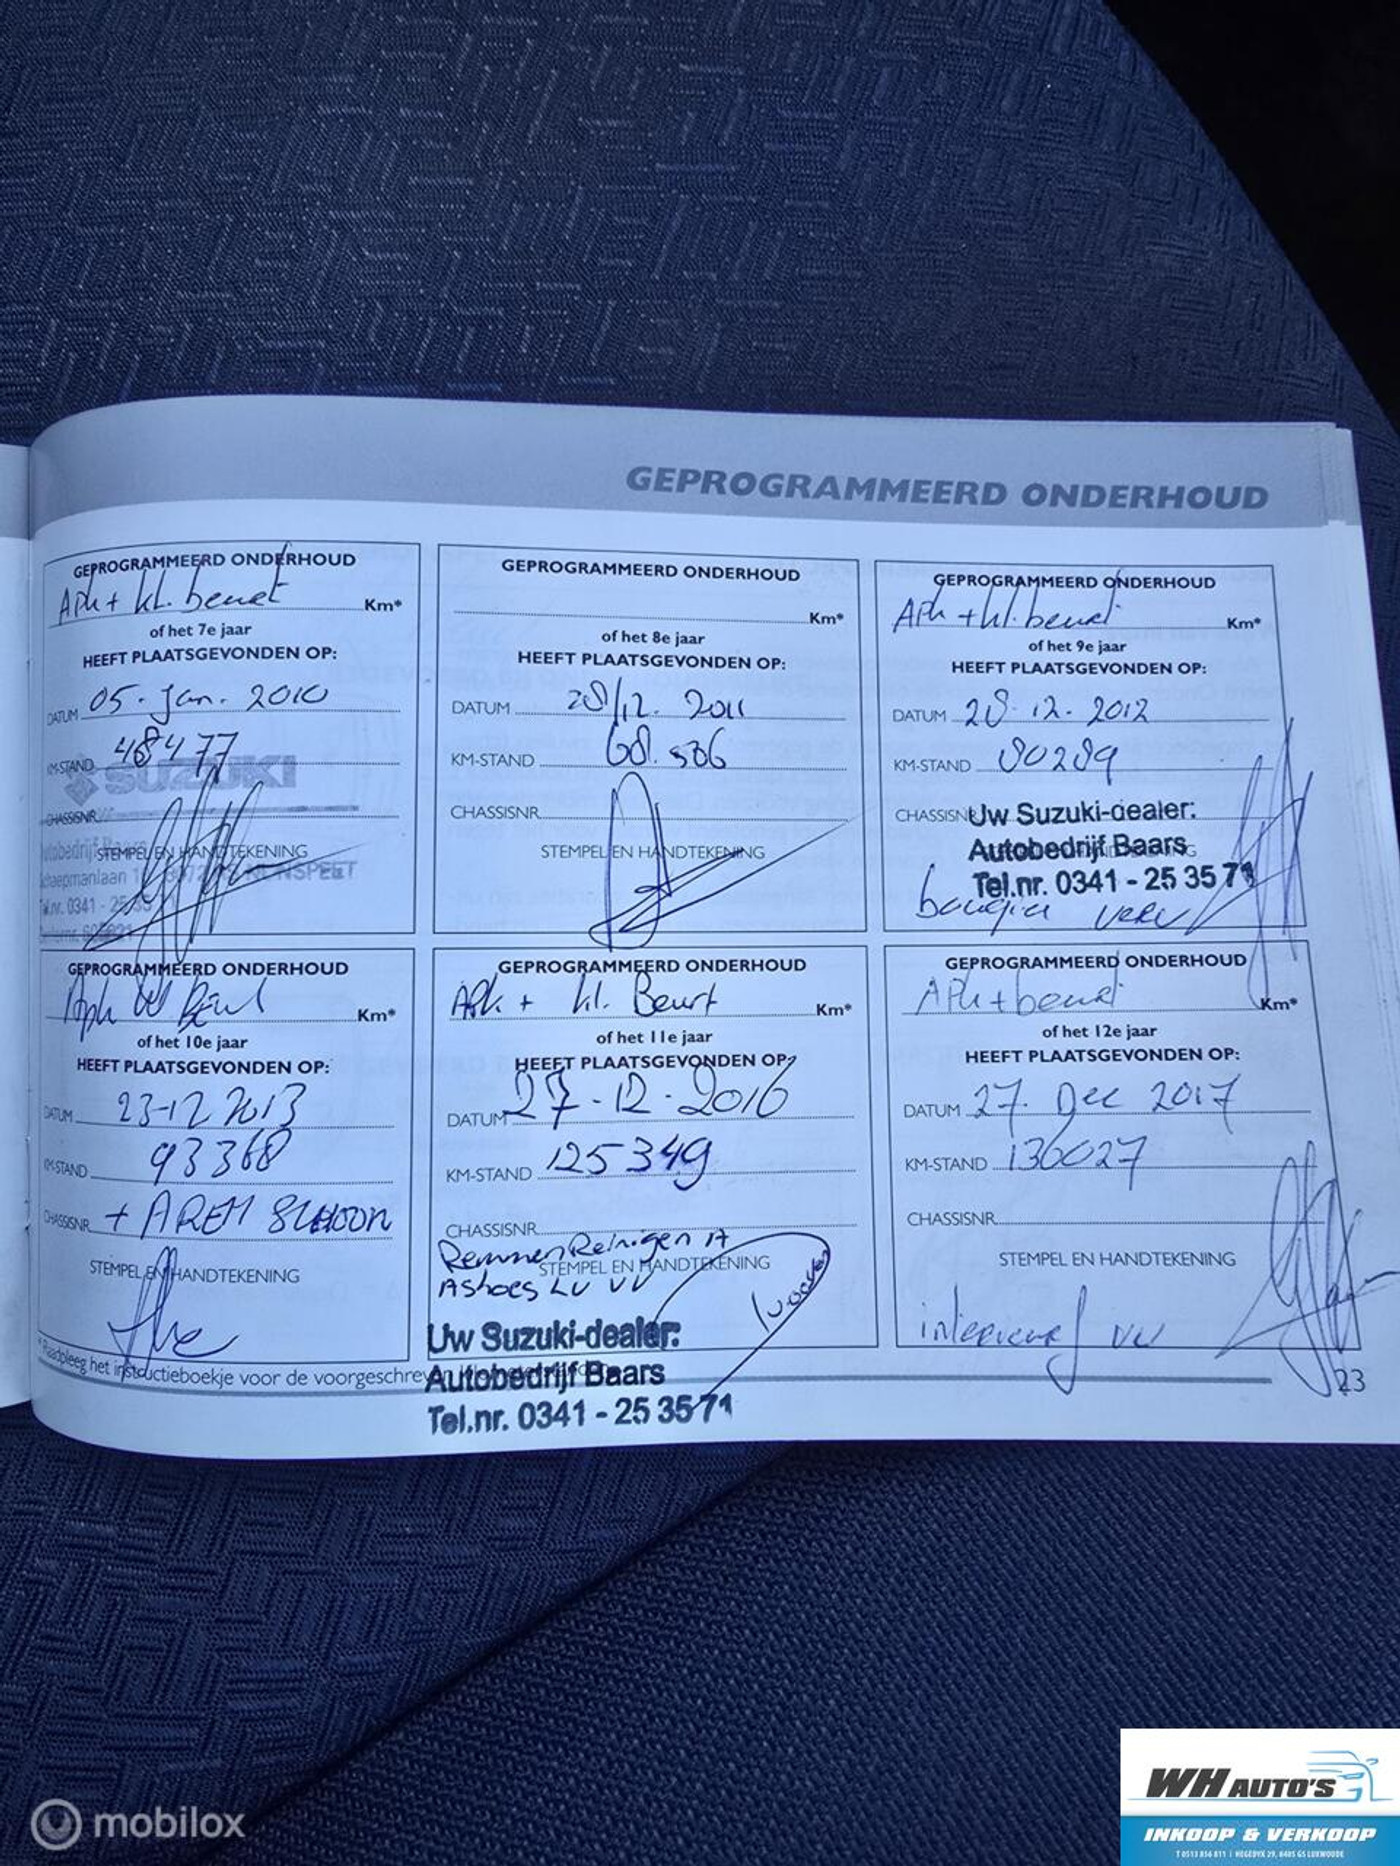 GEPROGRAMMEERD ONDERHOUD
GEPROGRAMMEERD ONDERHOUD
APK + kl. beurt Km*
of het 7e jaar
HEEFT PLAATSGEVONDEN OP:
DATUM 05. Jan. 2010
KM-STAND 48477
SUZUKI
CHASSISNR.
STEMPEL EN HANDTEKENING
Autobedrijf
NUNSPEET
Tel.nr. 0341 - 25
GEPROGRAMMEERD ONDERHOUD
Km*
of het 8e jaar
HEEFT PLAATSGEVONDEN OP:
DATUM 28/12. 2011
KM-STAND 68.586
CHASSISNR.
STEMPEL EN HANDTEKENING
GEPROGRAMMEERD ONDERHOUD
APK + kl. beurt Km*
of het 9e jaar
HEEFT PLAATSGEVONDEN OP:
DATUM 28.12.2012
KM-STAND 80289
CHASSISNR
Uw Suzuki-dealer:
Autobedrijf Baars
Tel.nr. 0341 - 25 35 71
bougies verv
GEPROGRAMMEERD ONDERHOUD
Apk Beurt Km*
of het 10e jaar
HEEFT PLAATSGEVONDEN OP:
DATUM 23-12 2013
KM-STAND 93368
CHASSISNR. + AREM SCHOON
STEMPEL EN HANDTEKENING
GEPROGRAMMEERD ONDERHOUD
APK + kl. Beurt Km*
of het 11e jaar
HEEFT PLAATSGEVONDEN OP:
DATUM 27-12-2016
KM-STAND 125349
CHASSISNR.
Remmen Reinigen A
STEMPEL EN HANDTEKENING
Ashoes LV VV
Uw Suzuki-dealer:
Autobedrijf Baars
Tel.nr. 0341 - 25 35 71
GEPROGRAMMEERD ONDERHOUD
APK + beurt Km*
of het 12e jaar
HEEFT PLAATSGEVONDEN OP:
DATUM 27. Dec 2017
KM-STAND 130027
CHASSISNR.
STEMPEL EN HANDTEKENING
interieurf vv
* Raadpleeg het instructieboekje voor de voorgeschreven
23
mobilox
WH AUTO'S
INKOOP & VERKOOP
T 0513 856 811 | HEGEDYK 29, 8405 GS LUXWOUDE